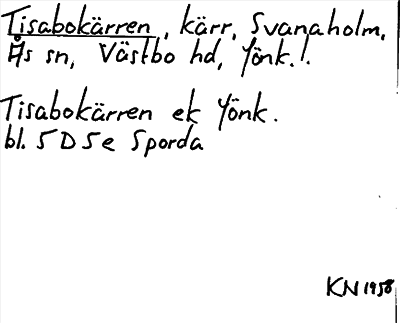 Tisabokärren, kärr, Svanaholm,
Ås sn, Västbo hd, Jönk.l.
Tisabokärren ek Jönk.
bl. 5D5e Sporda
KN 1958